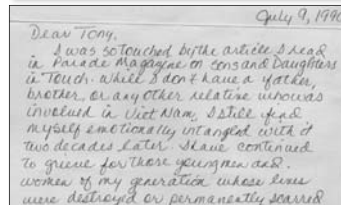 July 9, 1990
Dear Tony,
I was so touched by the article I read
in Parade Magazine on Sons and Daughters
in Touch. While I don't have a father,
brother, or any other relative who was
involved in Viet Nam, I still find
myself emotionally intangled with it
two decades later. I have continued
to grieve for those young men and
women of my generation whose lives
were destroyed or permanently scarred